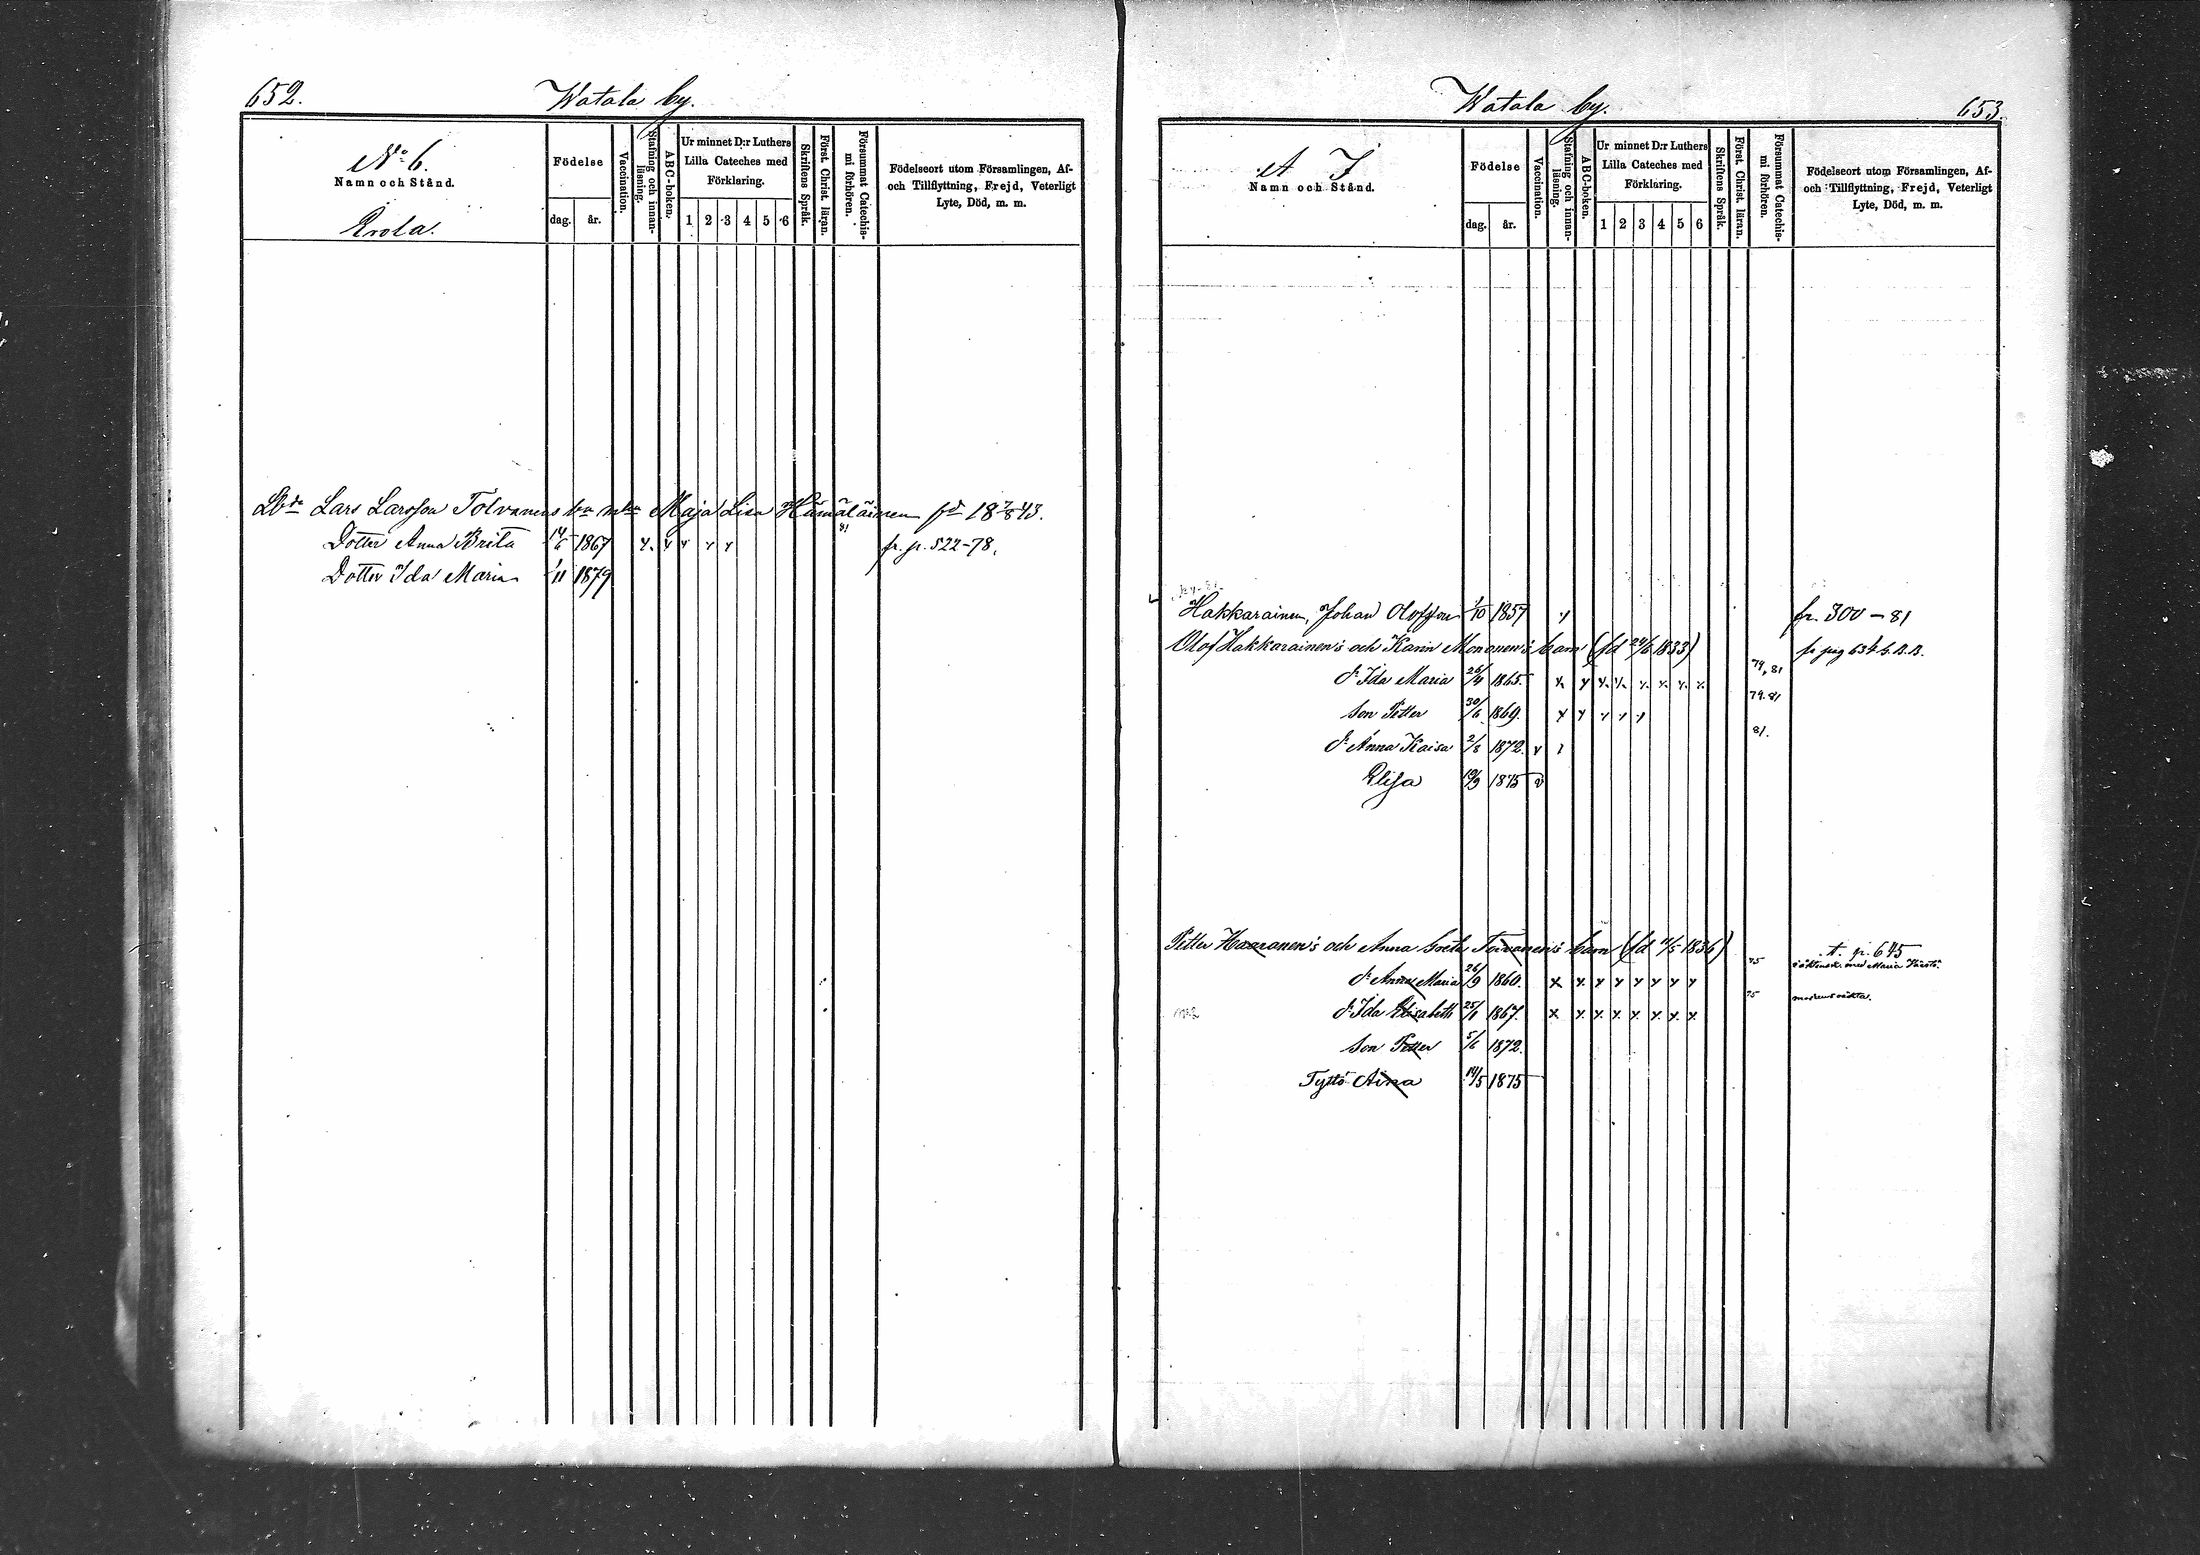 652.
Watala by.
No 6.
Namn och Stånd.
Erola.
Födelse
dag. år.
Vaccination.
Stafning och innan-
läsning.
ABC-boken.
Ur minnet D:r Luthers
Lilla Cateches med
Förklaring.
1 2 3 4 5 6
Skriftens Språk.
Först. Christ. läran.
Försummat Catechis-
mi förhören.
Födelseort utom Församlingen, Af-
och Tillflyttning, Frejd, Veterligt
Lyte, Död, m. m.
Lars Larsson Tolvanens Maja Lisa Hämäläinen fd 18 7/8 43.
81
Dotter Anna Brita 14/6 1867 x. x x x x fr. p. 522-78.
Dotter Ida Maria 1/11 1879
Watala by.
653.
Namn och Stånd.
Födelse
dag. år.
Vaccination.
Stafning och innan-
läsning.
ABC-boken.
Ur minnet D:r Luthers
Lilla Cateches med
Förklaring.
1 2 3 4 5 6
Skriftens Språk.
Först. Christ. läran.
Försummat Catechis-
mi förhören.
Födelseort utom Församlingen, Af-
och Tillflyttning, Frejd, Veterligt
Lyte, Död, m. m.
Hakkarainen, Johan Olofsson 1/10 1857 fr. 300-81
Olof Hakkarainen's och Karin Mononen's barn (fd 24/6 1833) fr pag 634
79, 81
dr Ida Maria 26/4 1865. x x x x x x x x
79. 81
Son Petter 30/6 1869. x x x x x
81.
dr Anna Kaisa 2/8 1872. v
Elisa 19/9 1875 v
Petter Haaranen's och Anna Greta Toivanen's barn (fd 4/5 1836) t. p. 645
75 i äktensk. med Maria
dr Anna Maria 26/9 1860. x x x x x x x x
75 moderns oäkta.
dr Ida Elisabeth 25/1 1867. x x x x x x x x
Son Petter 5/6 1872.
Tyttö Aina 14/5 1875